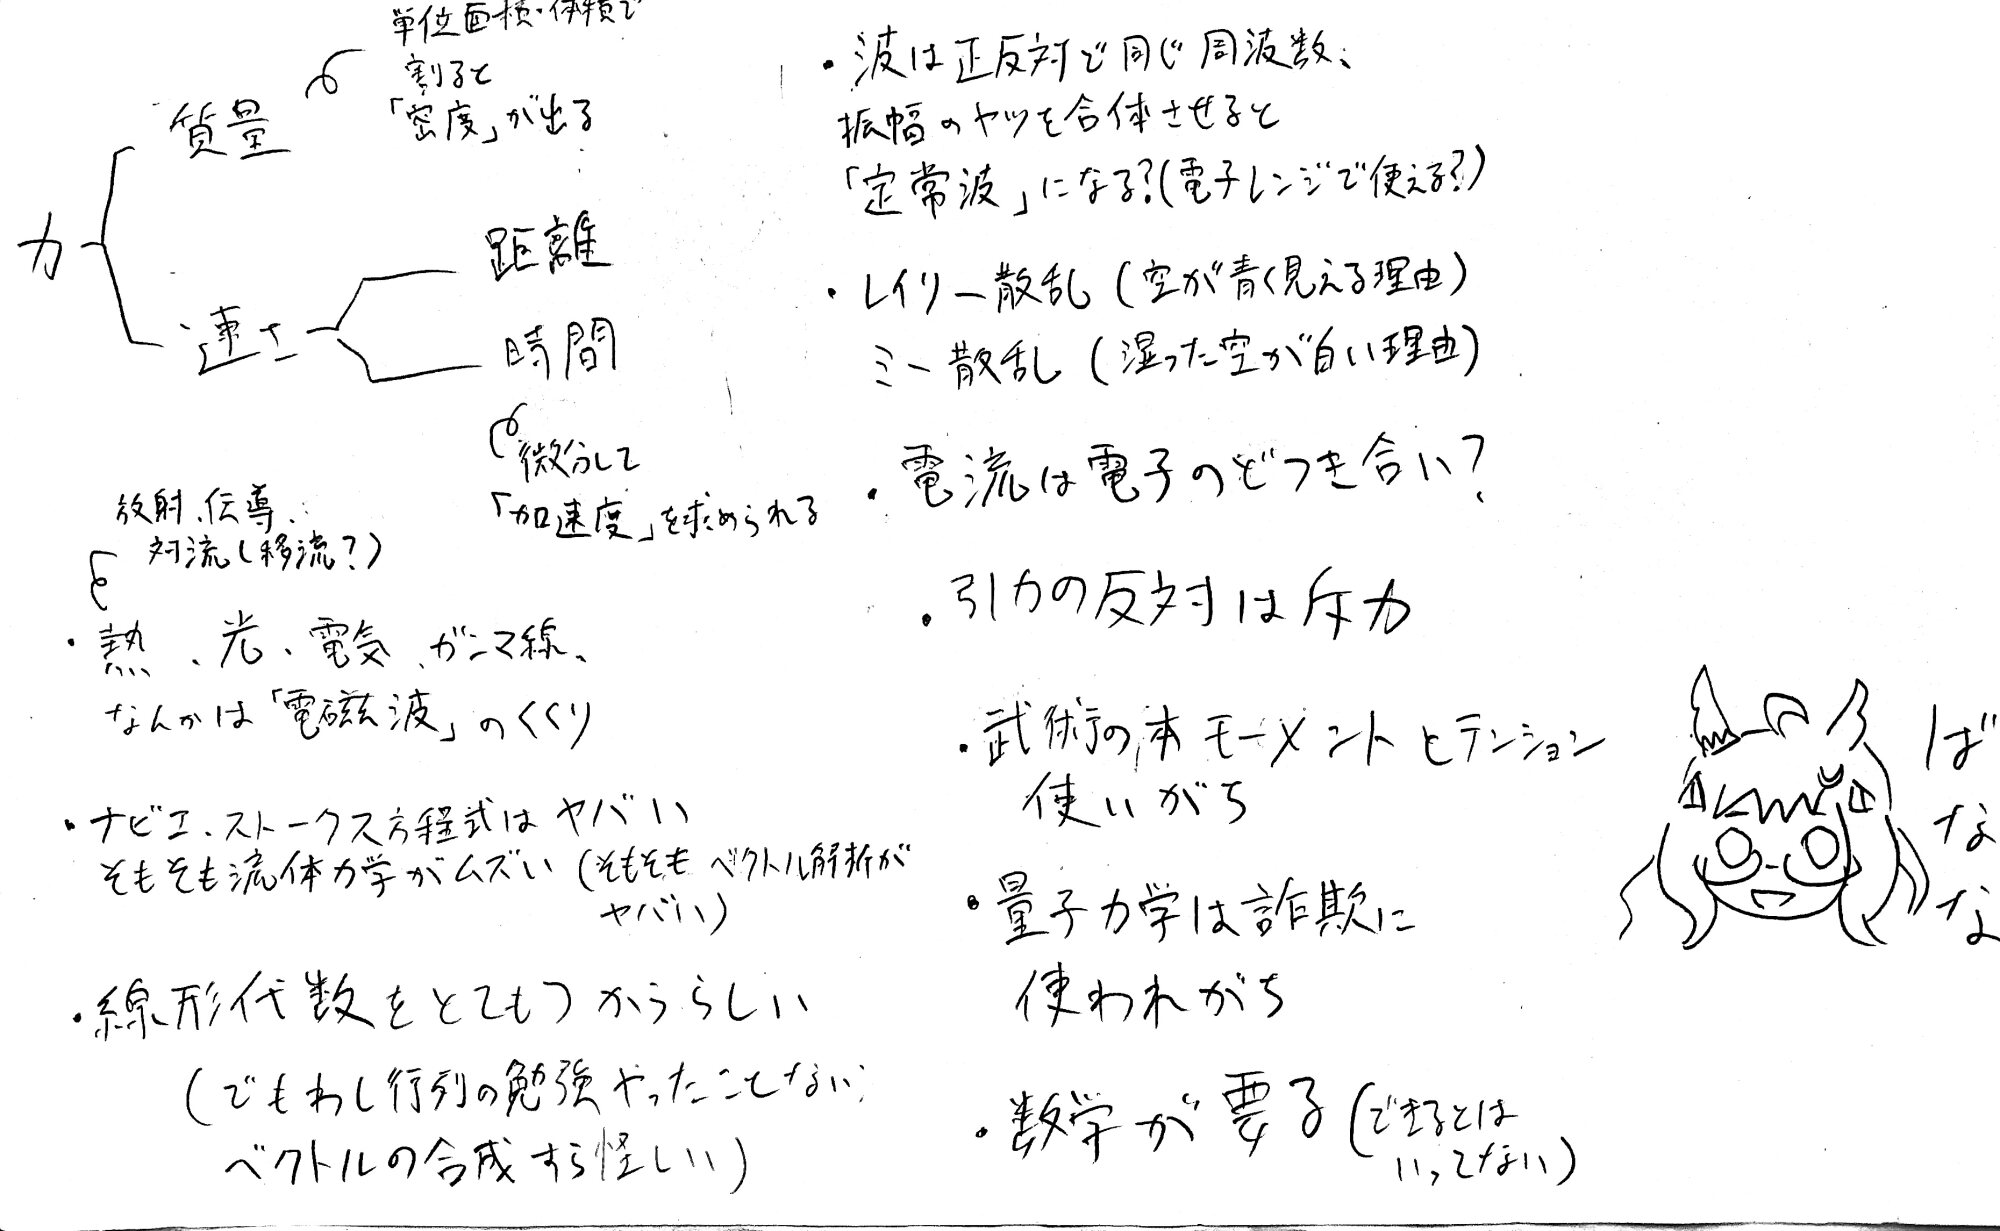 単位面積・体積で
割ると
「密度」が出る
質量
力
速さ
距離
時間
微分して
「加速度」を求められる
放射、伝導、
対流(移流?)
・熱、光、電気、ガンマ線、
なんかは「電磁波」のくくり
・ナビエ、ストークス方程式はヤバい
そもそも流体力学がムズい(そもそもベクトル解析が
ヤバい)
・線形代数をとてもつかうらしい
(でもわし行列の勉強やったことない
ベクトルの合成すら怪しい)
・波は正反対で同じ周波数、
振幅のヤツを合体させると
「定常波」になる?(電子レンジで使える?)
・レイリー散乱(空が青く見える理由)
ミー散乱(湿った空が白い理由)
・電流は電子のどつき合い?
・引力の反対は斥力
・武術の本モーメントとテンション
使いがち
・量子力学は詐欺に
使われがち
・数学が要る(できるとは
いってない)
ばなな